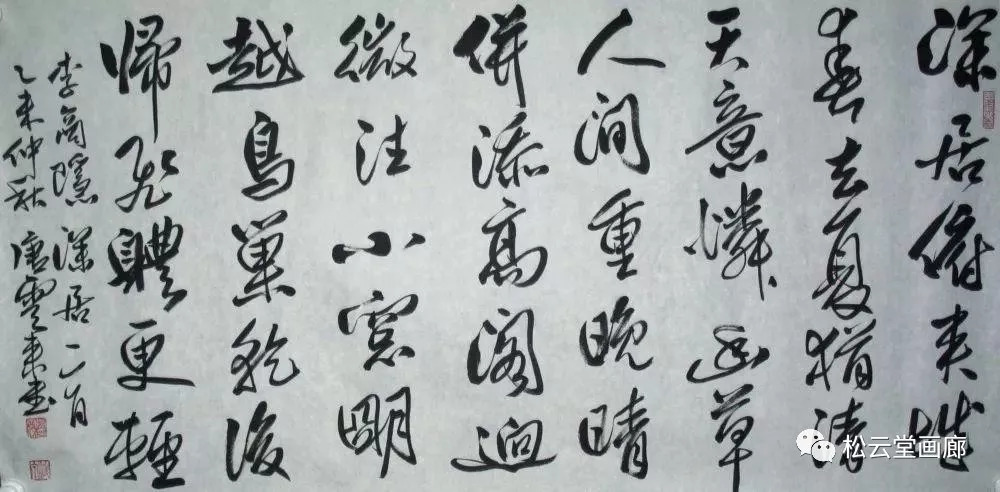 深居俯夾城
春去夏猶清
天意憐幽草
人間重晚晴
併添高閣迥
微注小窓明
越鳥巢乾後
歸飛體更輕
李商隱深居一首
乙未仲秋 唐雲來書
松云堂画廊